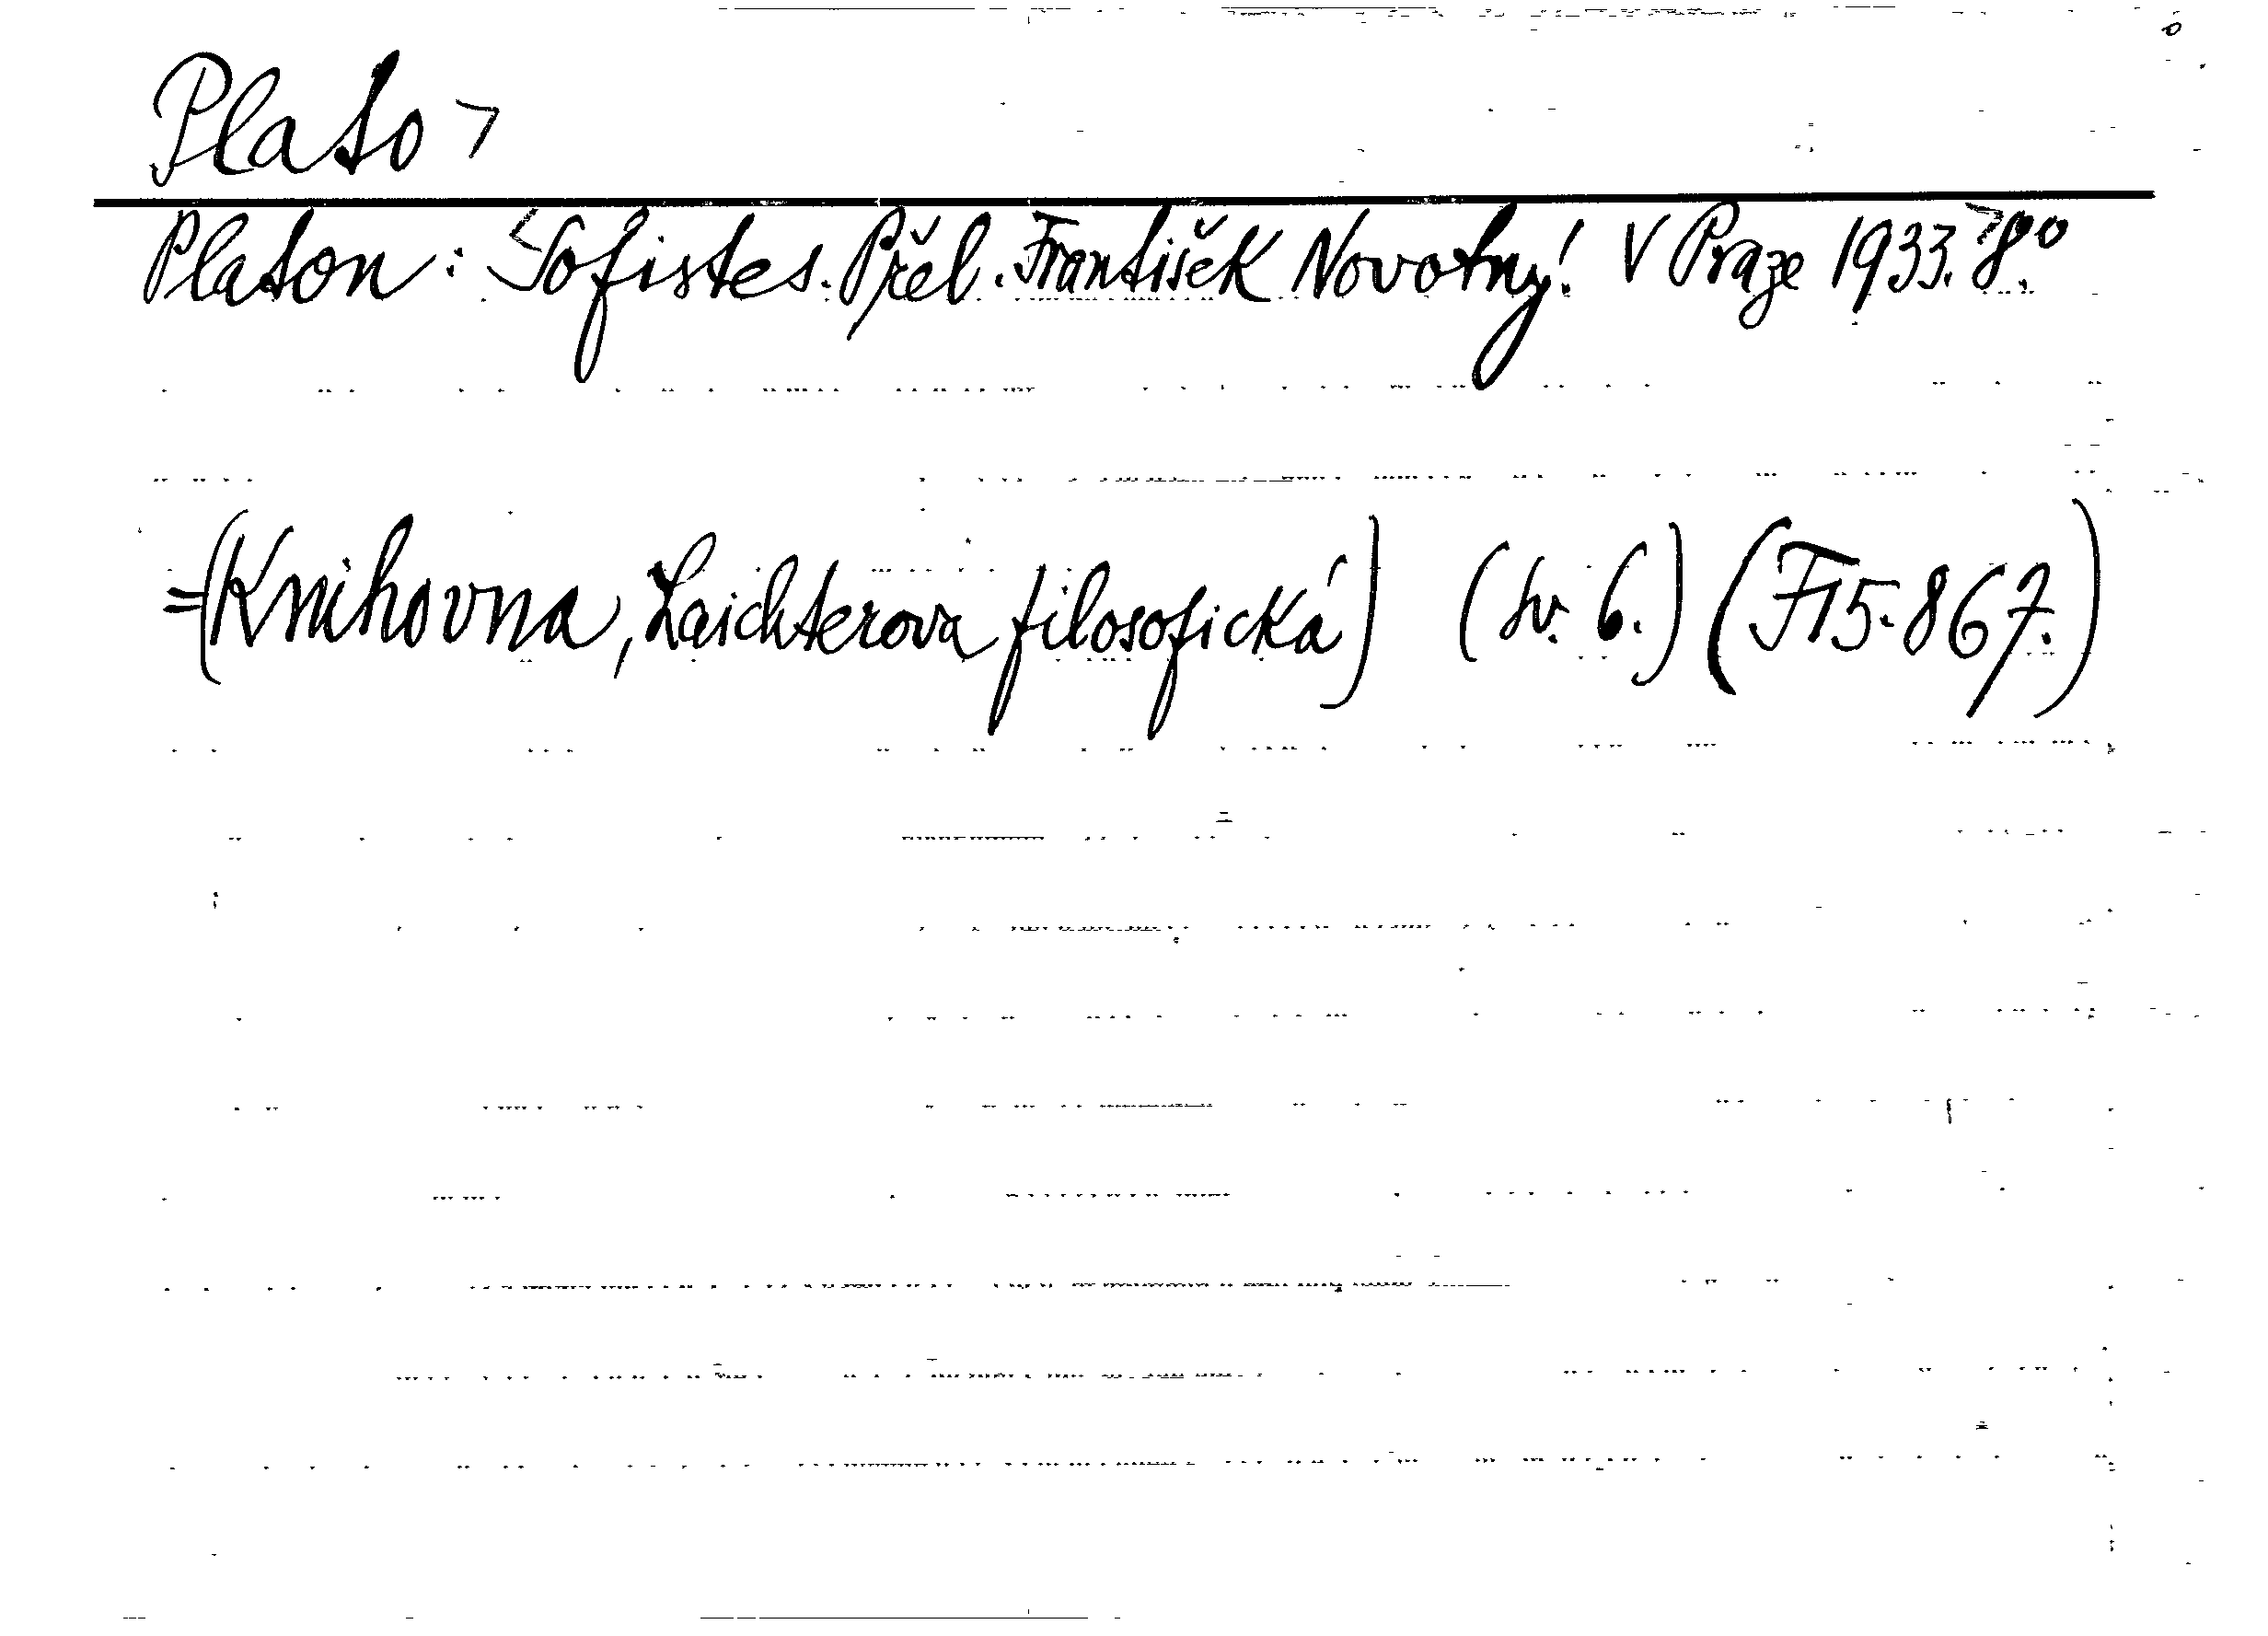 Plato ㄱ
Platon: Sofistes. Přel. František Novotný. V Praze 1933. 8°.
=(Knihovna, Laichterova filosofická) (sv. 6.) (F15.867.)